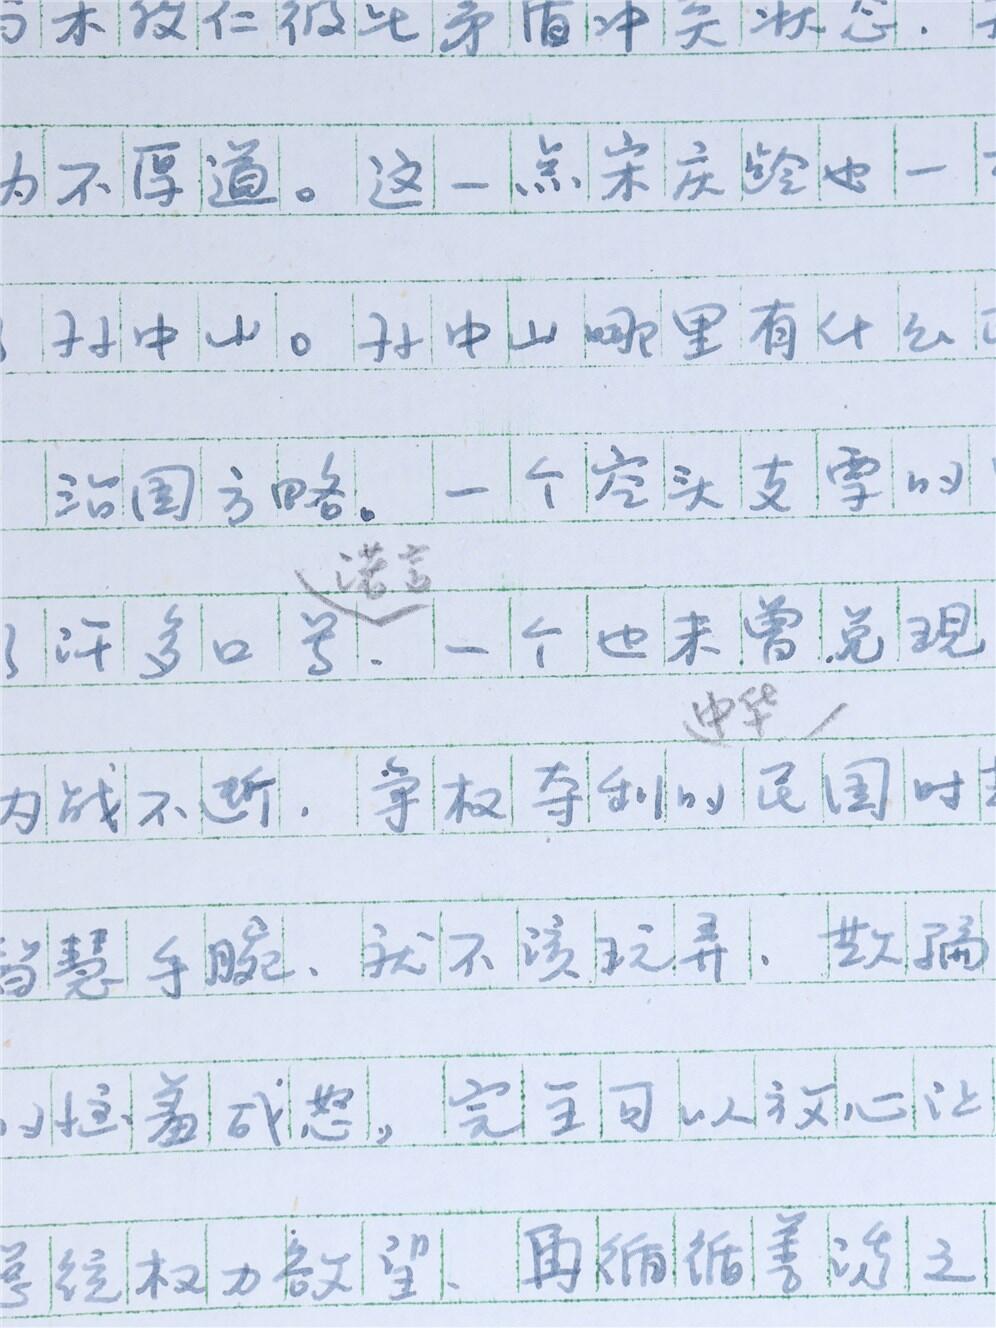 宋教仁彼此矛盾冲突状态，
为不厚道。这一点宋庆龄也一
孙中山。孙中山哪里有什么
治国方略。一个空头支票的
诺言
许多口号、一个也未曾兑现
中华
内战不断，争权夺利的民国时
智慧手腕、就不须玩弄、欺骗
的恼羞成怒，完全可以放心让
总统权力欲望、再循循善诱之